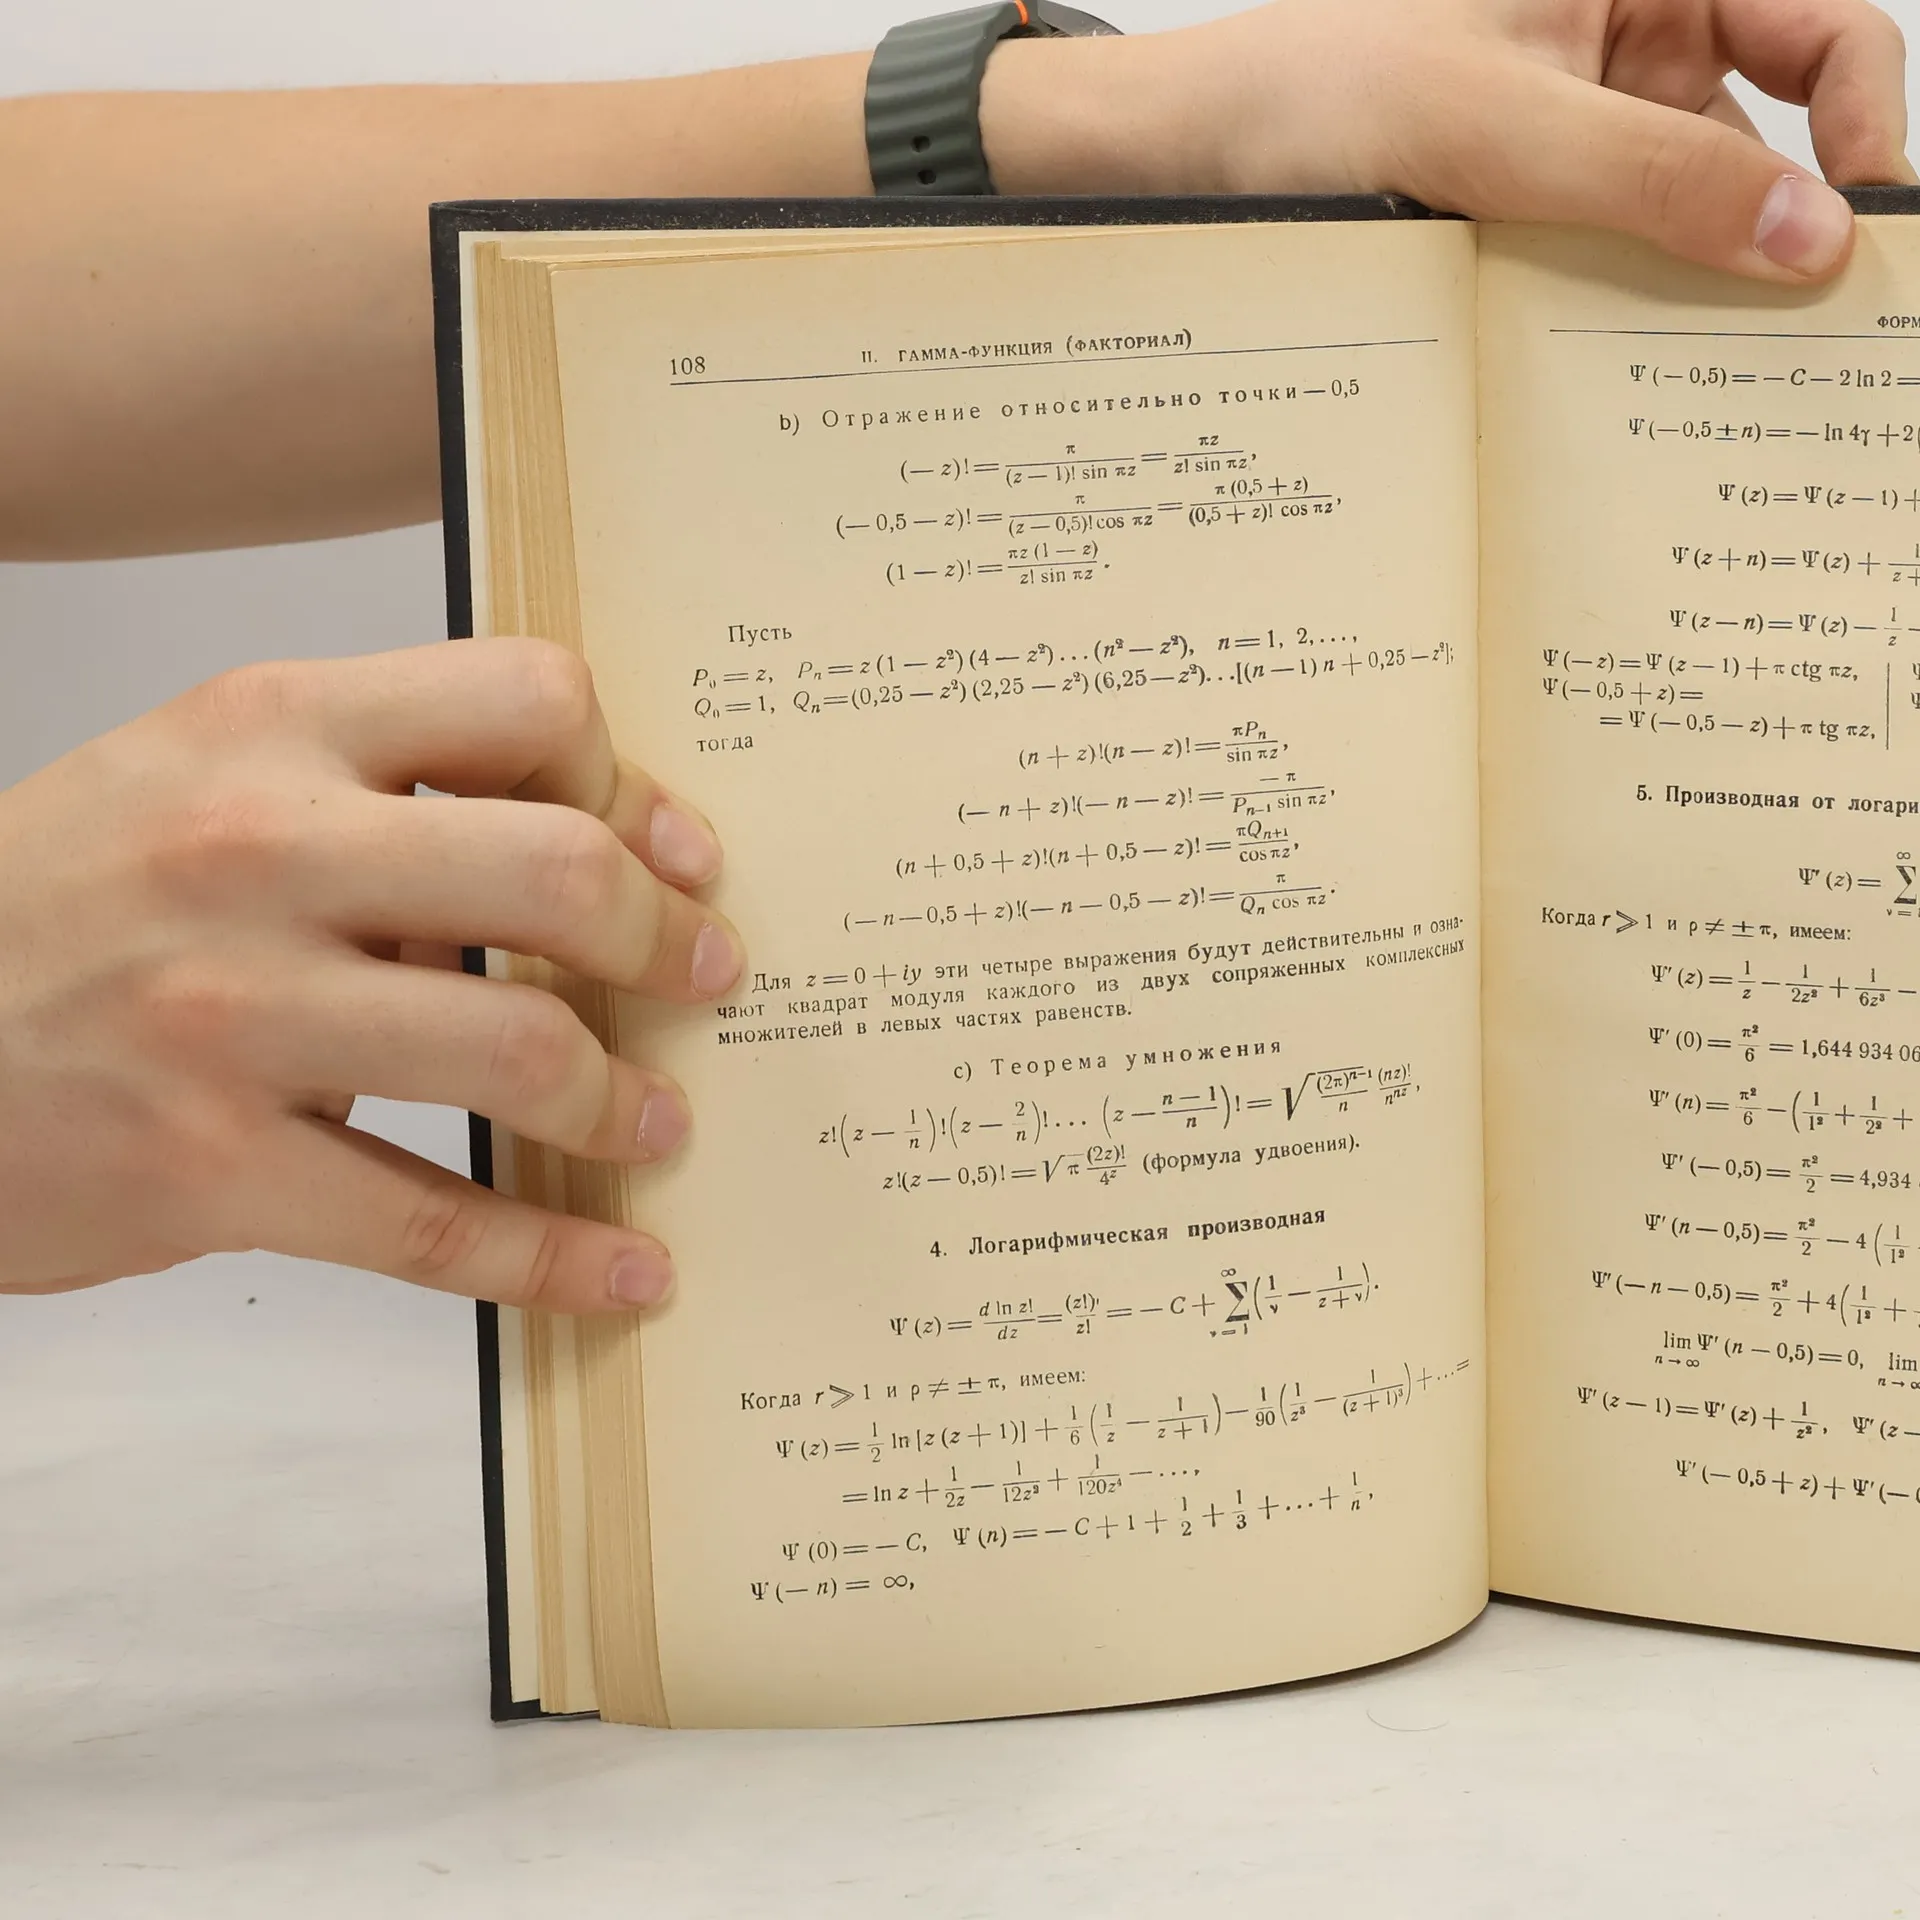 108
II. ГАММА-ФУНКЦИЯ (ФАКТОРИАЛ)
b) Отражение относительно точки — 0,5
(— z)! = π / ((z — 1)! sin πz) = πz / (z! sin πz),
(— 0,5 — z)! = π / ((z — 0,5)! cos πz) = π (0,5 + z) / ((0,5 + z)! cos πz),
(1 — z)! = πz (1 — z) / (z! sin πz).
Пусть
P₀ = z, Pₙ = z (1 — z²) (4 — z²) ... (n² — z²), n = 1, 2, ...,
Q₀ = 1, Qₙ = (0,25 — z²) (2,25 — z²) (6,25 — z²) ... [(n — 1) n + 0,25 — z²];
тогда
(n + z)! (n — z)! = πPₙ / sin πz,
(— n + z)! (— n — z)! = — π / (Pₙ₋₁ sin πz),
(n + 0,5 + z)! (n + 0,5 — z)! = πQₙ₊₁ / cos πz,
(— n — 0,5 + z)! (— n — 0,5 — z)! = π / (Qₙ cos πz).
Для z = 0 + iy эти четыре выражения будут действительны и озна-
чают квадрат модуля каждого из двух сопряженных комплексных
множителей в левых частях равенств.
c) Теорема умножения
z! (z — 1/n)! (z — 2/n)! ... (z — (n — 1)/n)! = √((2π)ⁿ⁻¹ / n) (nz)! / nⁿᶻ,
z! (z — 0,5)! = √π (2z)! / 4ᶻ (формула удвоения).
4. Логарифмическая производная
Ψ (z) = d ln z! / dz = (z!)′ / z! = — C + ∑_{ν = 1}^{∞} (1/ν — 1/(z + ν)).
Когда r ⩾ 1 и ρ ≠ ± π, имеем:
Ψ (z) = 1/2 ln [z (z + 1)] + 1/6 (1/z — 1/(z + 1)) — 1/90 (1/z³ — 1/(z + 1)³) + ... =
= ln z + 1/2z — 1/12z² + 1/120z⁴ — ...,
Ψ (0) = — C, Ψ (n) = — C + 1 + 1/2 + 1/3 + ... + 1/n,
Ψ (— n) = ∞,
Ψ (— 0,5) = — C — 2 ln 2 =
Ψ (— 0,5 ± n) = — ln 4γ + 2
Ψ (z) = Ψ (z — 1) +
Ψ (z + n) = Ψ (z) +
Ψ (z — n) = Ψ (z) — 1/z —
Ψ (— z) = Ψ (z — 1) + π ctg πz,
Ψ (— 0,5 + z) =
= Ψ (— 0,5 — z) + π tg πz,
5. Производная от
Ψ′ (z) = ∑
Когда r ⩾ 1 и ρ ≠ ± π, имеем:
Ψ′ (z) = 1/z — 1/2z² + 1/6z³ —
Ψ′ (0) = π²/6 = 1,644 934 06
Ψ′ (n) = π²/6 — (1/1² + 1/2² +
Ψ′ (— 0,5) = π²/2 = 4,934
Ψ′ (n — 0,5) = π²/2 — 4 (1/1²
Ψ′ (— n — 0,5) = π²/2 + 4 (1/1² +
lim_{n → ∞} Ψ′ (n — 0,5) = 0, lim
Ψ′ (z — 1) = Ψ′ (z) + 1/z², Ψ′ (z —
Ψ′ (— 0,5 + z) + Ψ′ (—